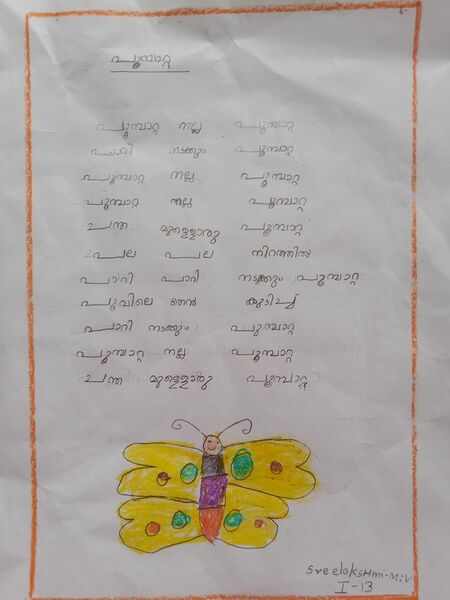 പൂമ്പാറ്റ
പൂമ്പാറ്റ നല്ല പൂമ്പാറ്റ
പാറി നടക്കും പൂമ്പാറ്റ
പൂമ്പാറ്റ നല്ല പൂമ്പാറ്റ
പൂമ്പാറ്റ നല്ല പൂമ്പാറ്റ
ചന്ത മുള്ളൊരു പൂമ്പാറ്റ
പല പല നിറത്തിൽ
പാറി പാറി നടക്കും പൂമ്പാറ്റ
പൂവിലെ തേൻ കുടിച്ച്
പാറി നടക്കും പൂമ്പാറ്റ
പൂമ്പാറ്റ നല്ല പൂമ്പാറ്റ
ചന്ത മുള്ളൊരു പൂമ്പാറ്റ
SreelakShmi.M.V
I-13